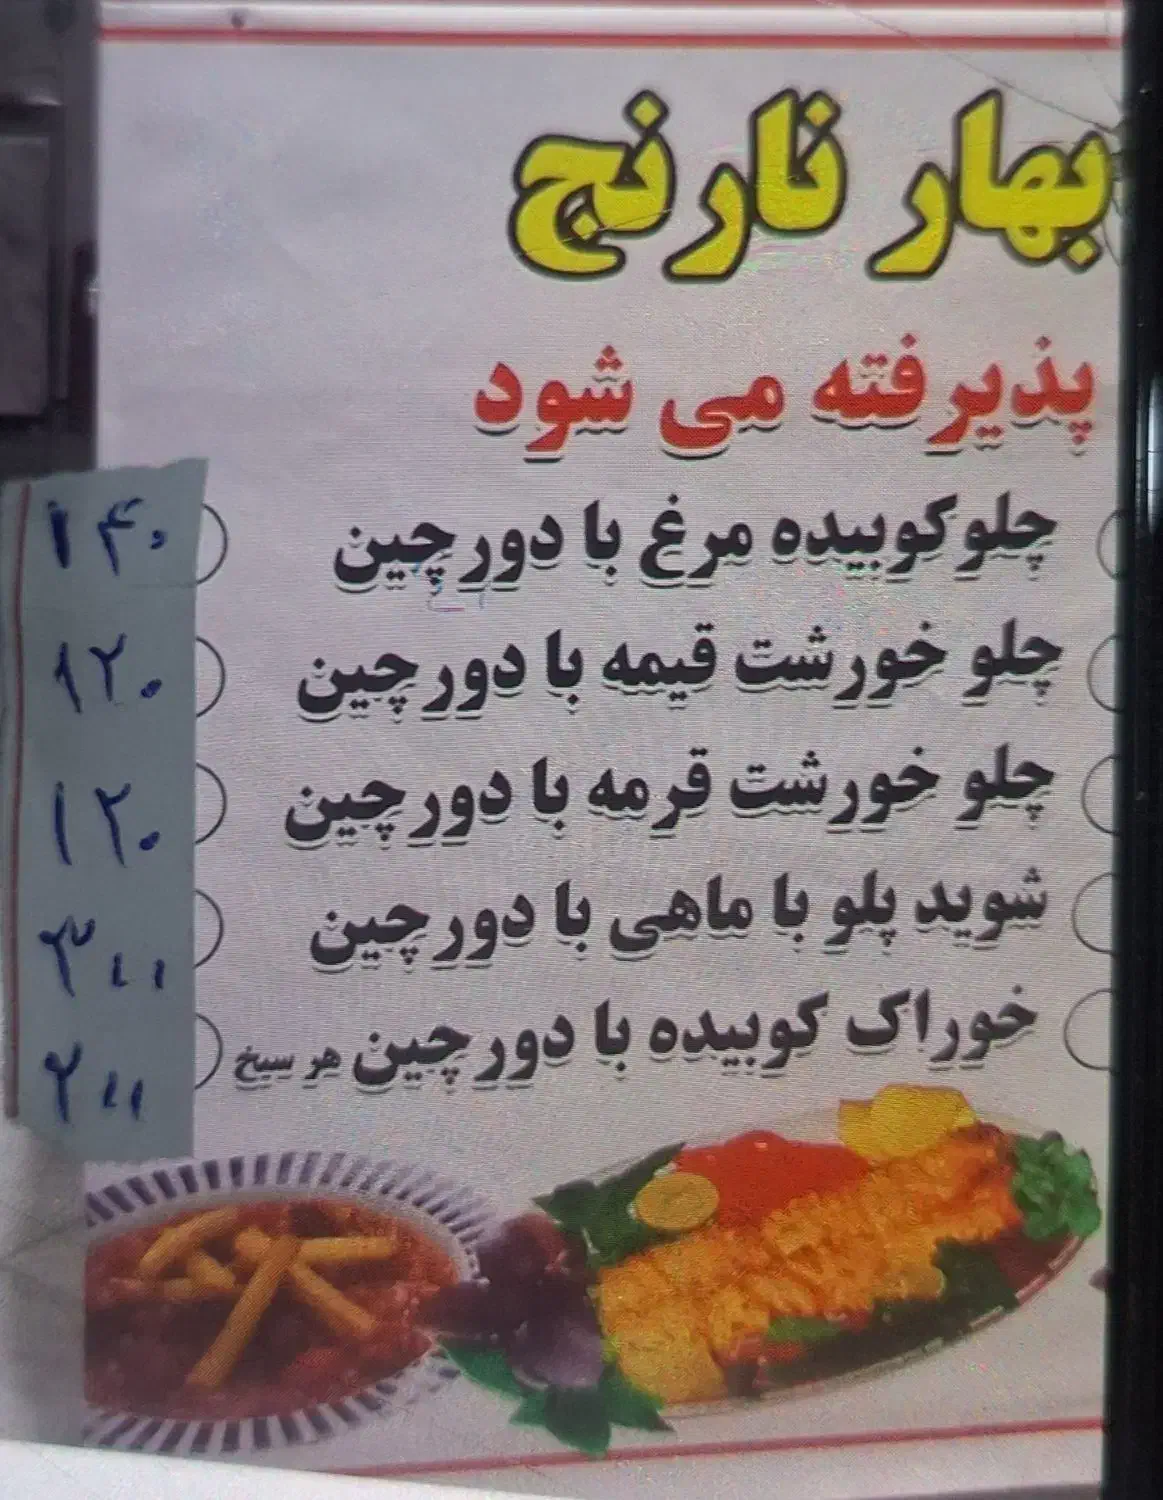 بهار نارنج
پذیرفته می شود
چلوکوبیده مرغ با دورچین ۱۴۰
چلو خورشت قیمه با دورچین ۱۲۰
چلو خورشت قرمه با دورچین ۱۲۰
شوید پلو با ماهی با دورچین ۳۰۰
خوراک کوبیده با دورچین هر سیخ ۲۰۰